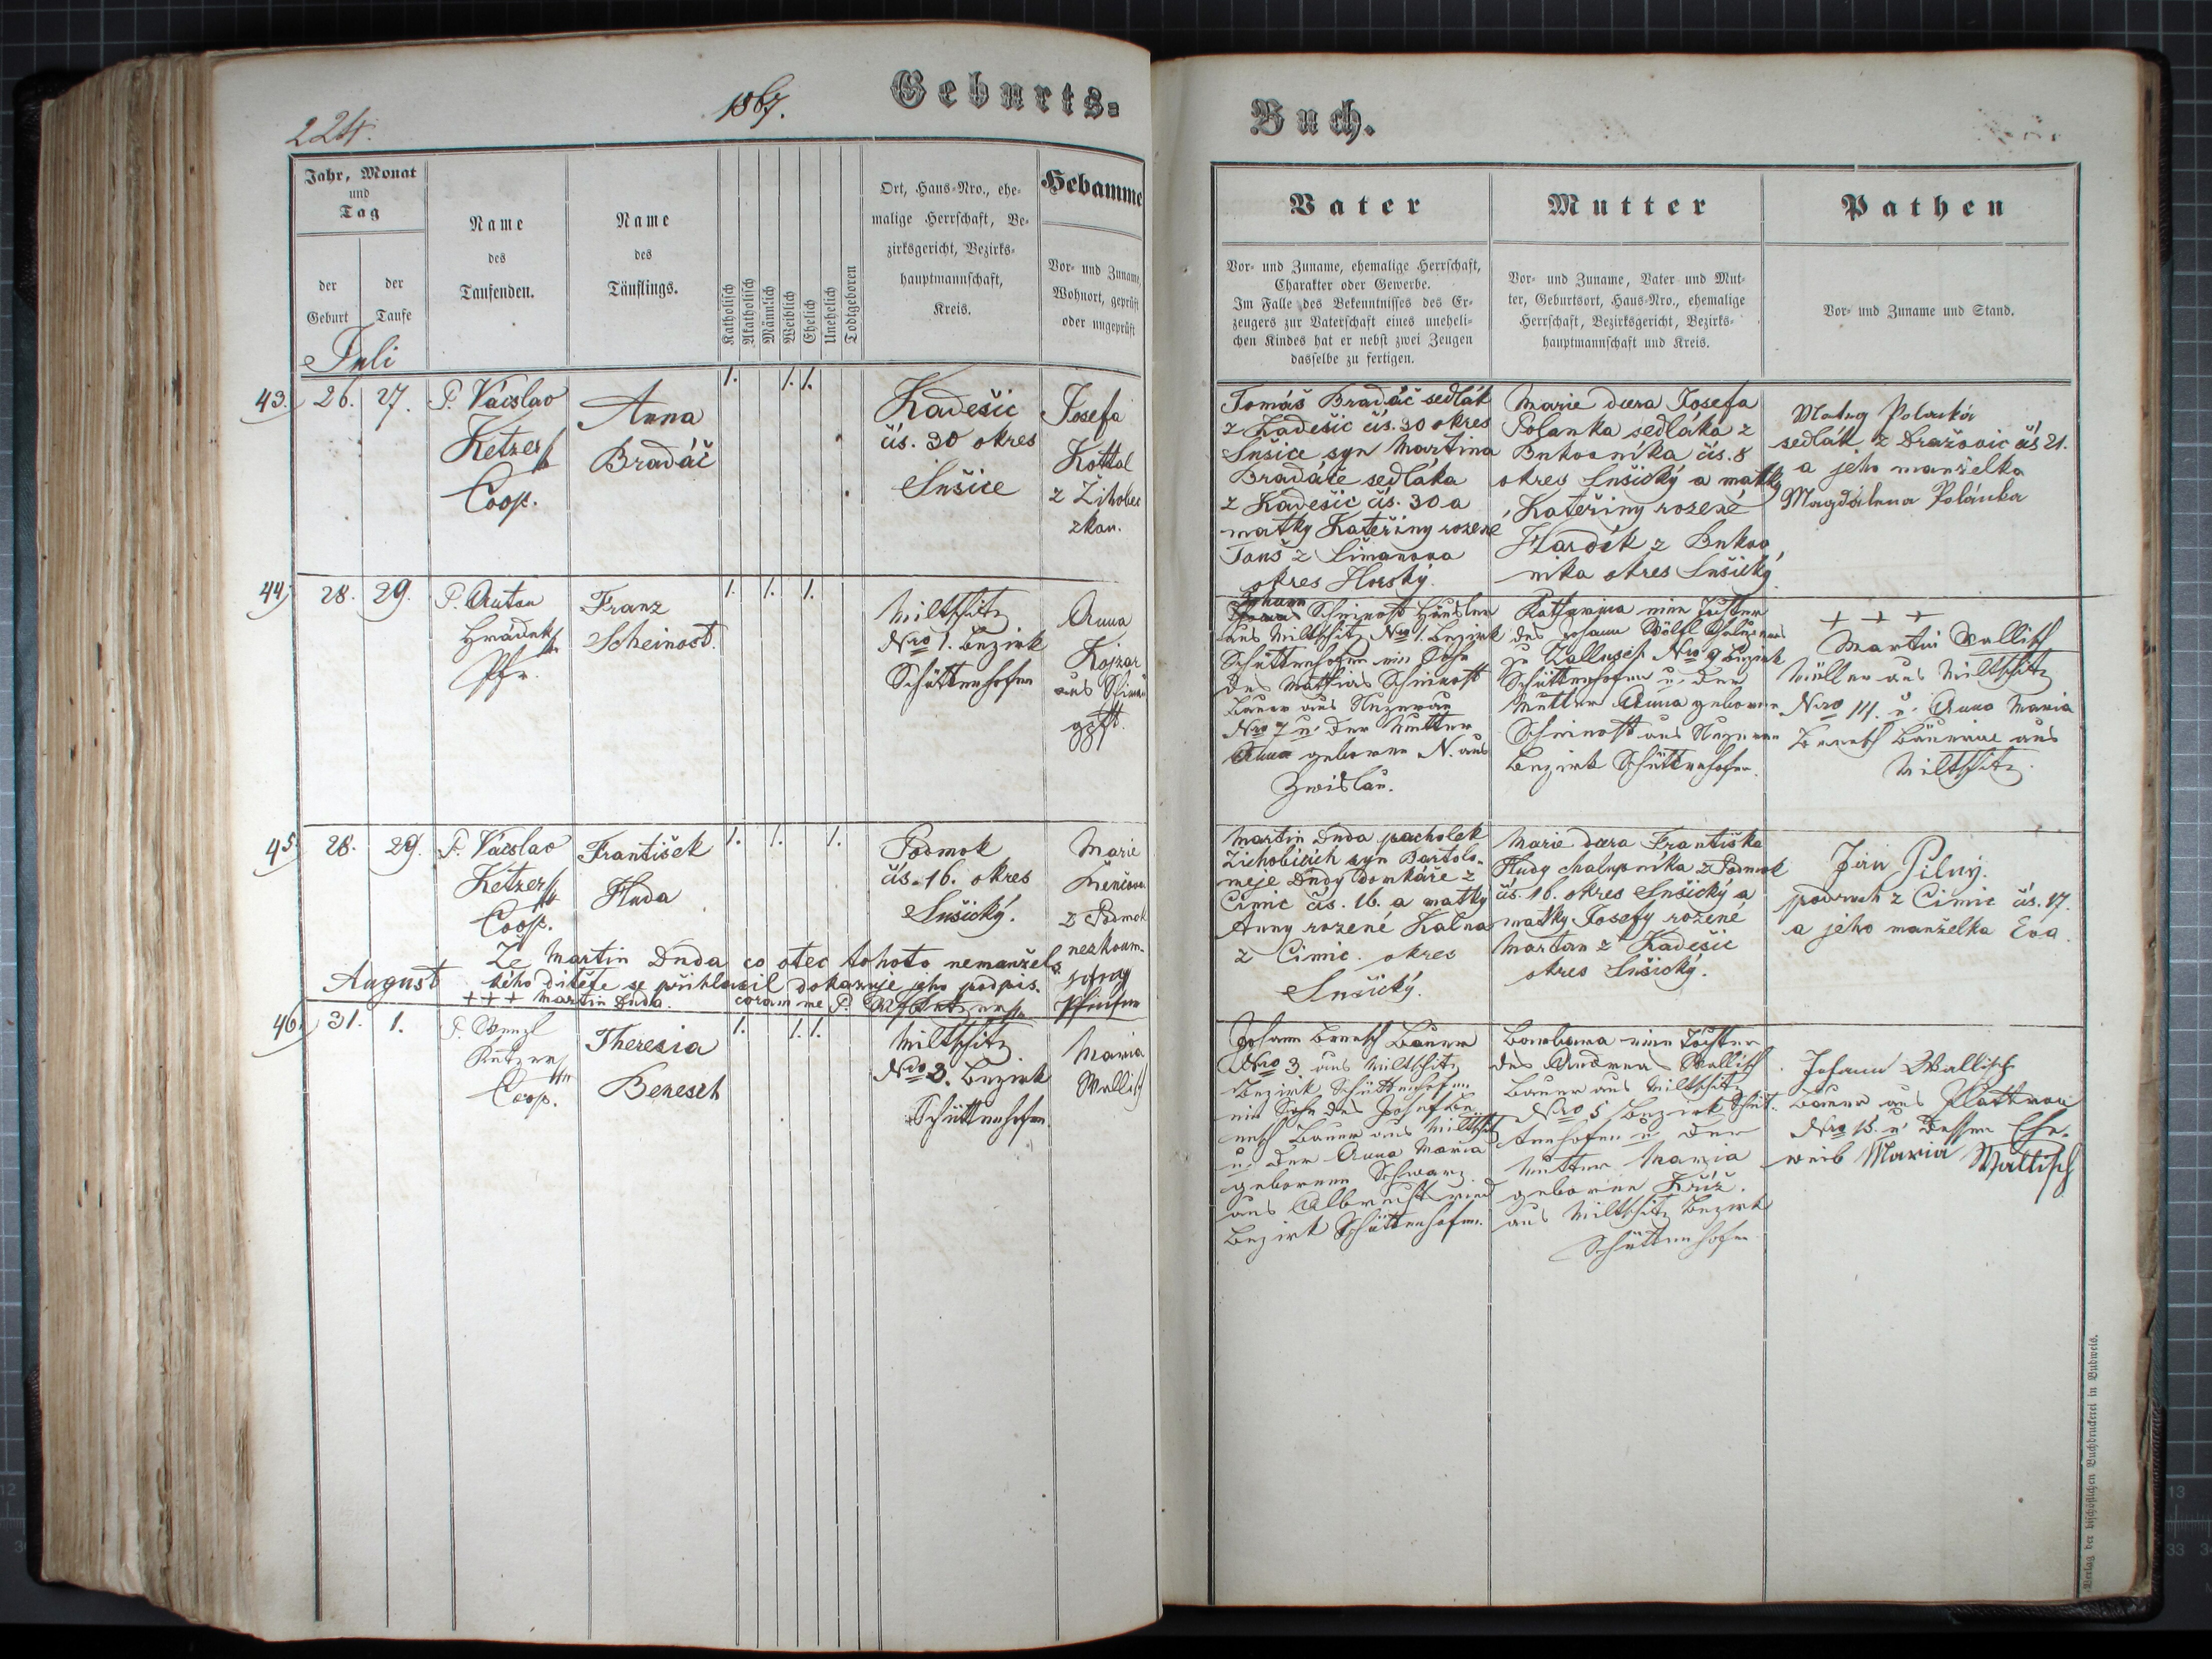 224.
1867.
Geburts=
Buch.
Jahr, Monat
und
Tag
der
Geburt
der
Taufe
Name
des
Taufenden.
Name
des
Täuflings.
Katholisch
Akatholisch
Männlich
Weiblich
Ehelich
Unehelich
Todtgeboren
Ort, Haus=Nro., ehe=
malige Herrschaft, Be=
zirksgericht, Bezirks=
hauptmannschaft,
Kreis.
Hebamme
Vor= und Zuname,
Wohnort, geprüft
oder ungeprüft
Vater
Vor= und Zuname, ehemalige Herrschaft,
Charakter oder Gewerbe.
Im Falle des Bekenntnisses des Er=
zeugers zur Vaterschaft eines uneheli=
chen Kindes hat er nebst zwei Zeugen
dasselbe zu fertigen.
Mutter
Vor= und Zuname, Vater und Mut=
ter, Geburtsort, Haus=Nro., ehemalige
Herrschaft, Bezirksgericht, Bezirks=
hauptmannschaft und Kreis.
Pathen
Vor= und Zuname und Stand.
Juli
43. 26. 27.
P. Vácslav
Ketzer
Coop.
Anna
Bradáč
1. 1. 1.
Kadešic
čís. 30 okres
Sušice
Josefa
Kottal
z Žihobec
zkou.
Tomáš Bradáč sedlák
z Kadešic čís. 30 okres
Sušice syn Martina
Bradáče sedláka
z Kadešic čís. 30 a
matky Kateřiny rozené
Tauš z Šimanova
okres Horský.
Marie dcera Josefa
Polanka sedláka z
Bukovníka čís. 8
okres Sušický a matky
Kateřiny rozené
z Bukov
níka okres Sušický
Polanka
sedlák z Dražovic čís 21.
a jeho manželka
Magdalena Polánka
44. 28. 29.
P. Anton
Hrádek
Pfr.
Franz
Scheinost.
1. 1. 1.
Miltschitz
Nro 1. Bezirk
Schüttenhofen
Anna
Kojzar
aus
gpft.
Johann
Scheinost Häusler
aus Miltschitz Nro 1. Bezirk
Schüttenhofen ein Sohn
des Mathias Scheinost
Bauer aus Nezerau
Nro 7 u. der Mutter
Anna geborene N. aus
Zwislau.
Katharina eine Tochter
des Johann Wölfl
zu Kallusch Nro 9 Bezirk
Schüttenhofen u. der
Mutter Anna geborene
Scheinost aus Nezerau
Bezirk Schüttenhofen.
+ + +
Martin Wallisch
Müller aus Miltschitz
Nro 14. u. Anna Maria
Benesch Bäuerin aus
Miltschitz.
45. 28. 29.
P. Vácslav
Ketzer
Coop.
František
Huda
1. 1. 1.
Podmok
čís. 16. okres
Sušický.
Marie
z Podmok
nezkoum.
Martin Duda pacholek
Žichobicích syn Bartolo-
měje Dudy domkáře z
Čimic čís. 16. a matky
Anny rozené Kalna
z Čimic. okres
Sušický.
Marie dcera Františka
Hudy chalupníka z Podmok
čís. 16. okres Sušický a
matky Josefy rozené
Martan z Kadešic
okres Sušický.
Jiří Pilný.
podruh z Čimic čís. 17.
a jeho manželka Eva.
Že Martin Duda co otec tohoto nemanžels
kého dítěte se přihlásil dokazuje jeho podpis.
+ + + Martin Duda. coram me P.
August
46. 31. 1.
P. Wenzl
Ketzer
Coop.
Theresia
Benesch
1. 1. 1.
Miltschitz
Nro 3. Bezirk
Schüttenhofen.
Maria
Wallisch
Johann Benesch Bauer
Nro 3 aus Miltschitz
Bezirk Schüttenhofen
ein Sohn des Josef Be=
nesch Bauer aus Miltschitz
u. der Anna Maria
geborene Schwarz
aus Albrechtsried
Bezirk Schüttenhofen.
Barbara eine Tochter
des Andreas Wallisch
Bauer aus Miltschitz
Nro 5 Bezirk Schüt=
tenhofen u. der
Mutter Maria
geborene Kříž.
aus Miltschitz Bezirk
Schüttenhofen
Johann Wallisch
Bauer aus Plattorn
Nro 15. u. dessen Ehe=
weib Maria Wallisch
Verlag der bischöflichen Buchdruckerei in Budweis.